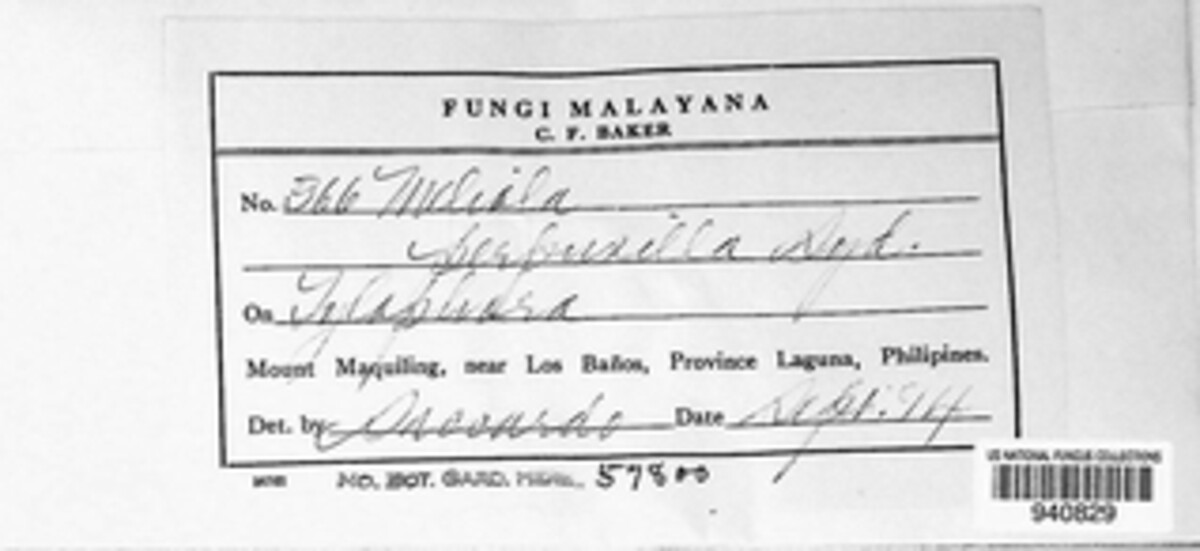 FUNGI MALAYANA
C. F. BAKER
No. 366 Meliola
Syd.
On Tylophora
Mount Maquiling, near Los Baños, Province Laguna, Philipines.
Det. by Date Sept. '14
MO. BOT. GARD. HERB. 57800
US NATIONAL FUNGUS COLLECTIONS
940829